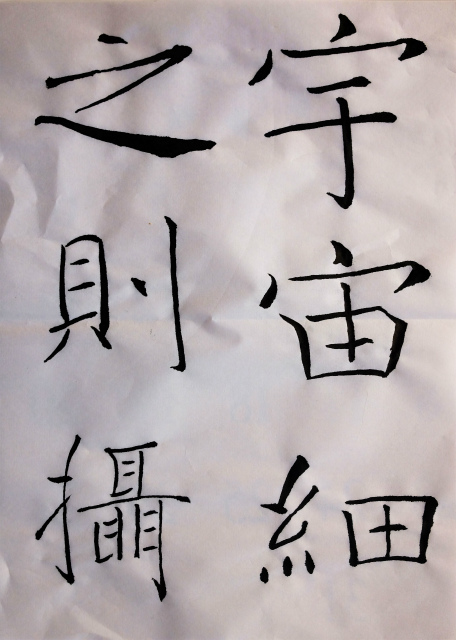 宇宙細
之則攝